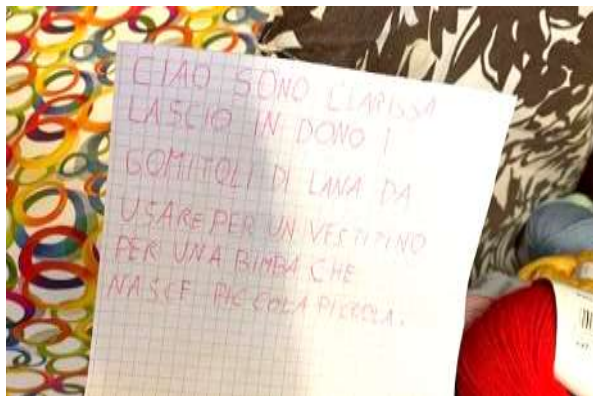 CIAO SONO CLARISSA
LASCIO IN DONO I
GOMITOLI DI LANA DA
USARE PER UN VESTITINO
PER UNA BIMBA CHE
NASCE PICCOLA PICCOLA.